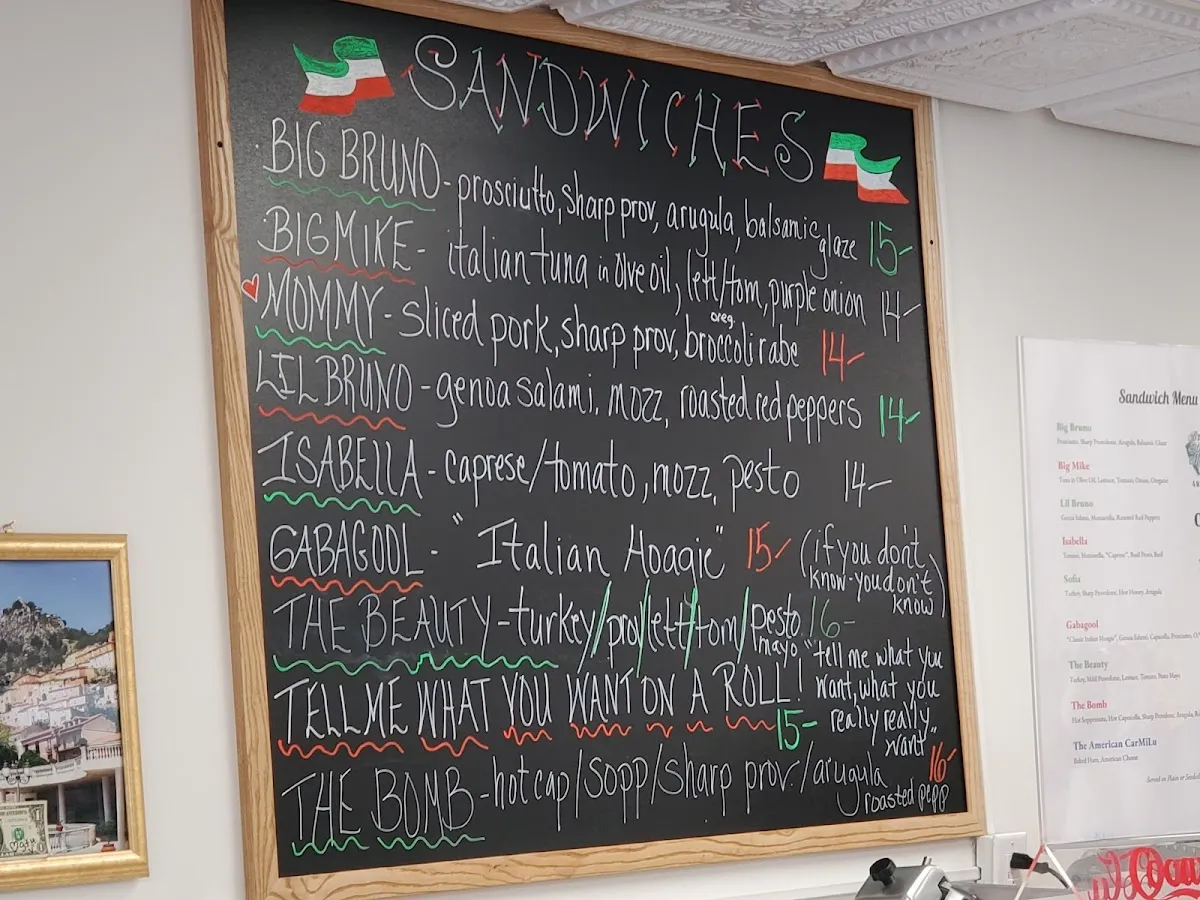 SANDWICHES
BIG BRUNO - prosciutto, sharp prov, arugula, balsamic glaze 15-
BIG MIKE - italian tuna in olive oil, lett/tom, purple onion 14-
MOMMY - sliced pork, sharp prov, broccoli rabe 14-
oreg.
LIL BRUNO - genoa salami, mozz, roasted red peppers 14-
ISABELLA - caprese/tomato, mozz, pesto 14-
GABAGOOL - "Italian Hoagie" 15- (if you don't
know - you don't
know)
THE BEAUTY - turkey/prov/lett/tom/pesto 16-
mayo
TELL ME WHAT YOU WANT ON A ROLL! 15-
"tell me what you
want, what you
really really
want"
THE BOMB - hot cap/sopp/sharp prov./arugula 16-
roasted pepp
Sandwich Menu
Big Bruno
Prosciutto, Sharp Provolone, Arugula, Balsamic Glaze
Big Mike
Tuna in Olive Oil, Lettuce, Tomato, Onion, Oregano
Lil Bruno
Genoa Salami, Mozzarella, Roasted Red Peppers
Isabella
Tomato, Mozzarella, "Caprese", Basil Pesto, Basil
Sofia
Turkey, Sharp Provolone, Hot Honey, Arugula
Gabagool
"Classic Italian Hoagie", Genoa Salami, Capicolla, Prosciutto,
The Beauty
Turkey, Mild Provolone, Lettuce, Tomato, Pesto Mayo
The Bomb
Hot Soppressata, Hot Capicolla, Sharp Provolone, Arugula,
The American CarMiLu
Baked Ham, American Cheese
Served on Plain or Seeded